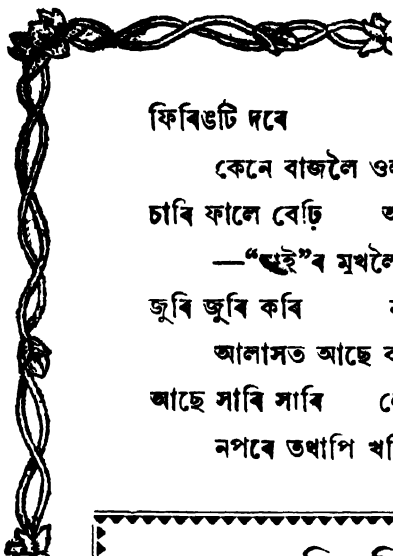 ফিৰিঙটি দৰে
কেনে বাজলৈ
চাৰি ফালে বেঢ়ি
—“ভাই”ৰ মুখলৈ
জুৰি জুৰি কৰি
আলাসত আছে
আছে সাৰি সাৰি
নপৰে তথাপি